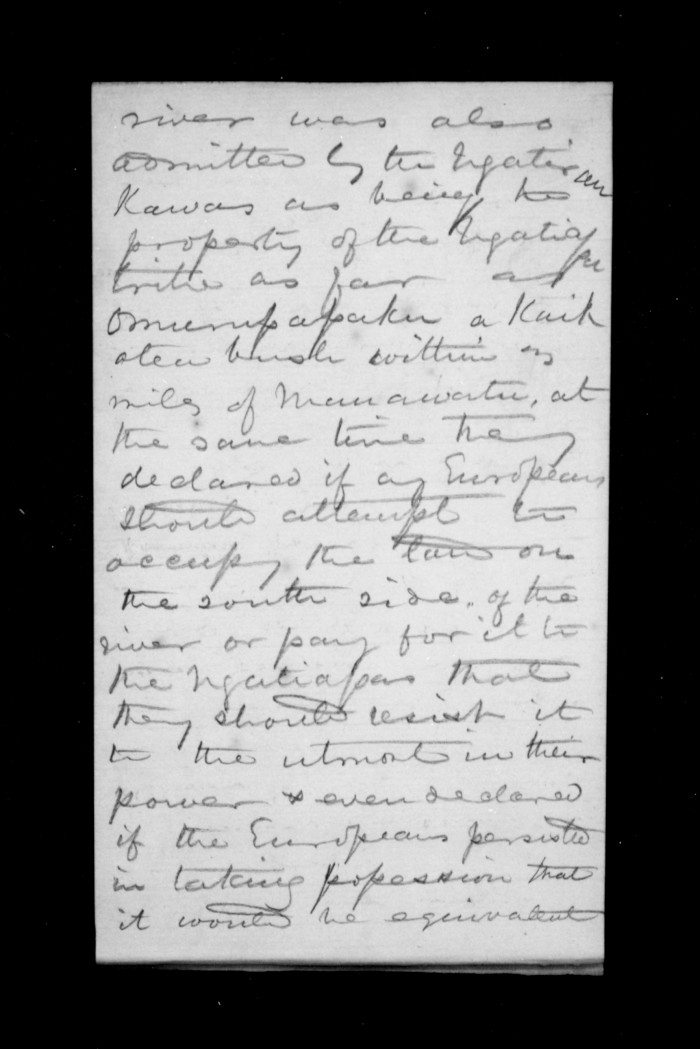 river was also
admitted by the Ngatirau
Kawas as being the
property of the Ngatiapa
tribe as far as
Omurupapaku a Kaik
atea bush within
miles of Manawatu, at
the same time they
declared if any Europeans
should attempt to
occupy the land on
the south side. of the
river or pay for it to
the Ngatiapas that
they should resist it
to the utmost in their
power & even declared
if the Europeans persisted
in taking possession that
it would be equivalent